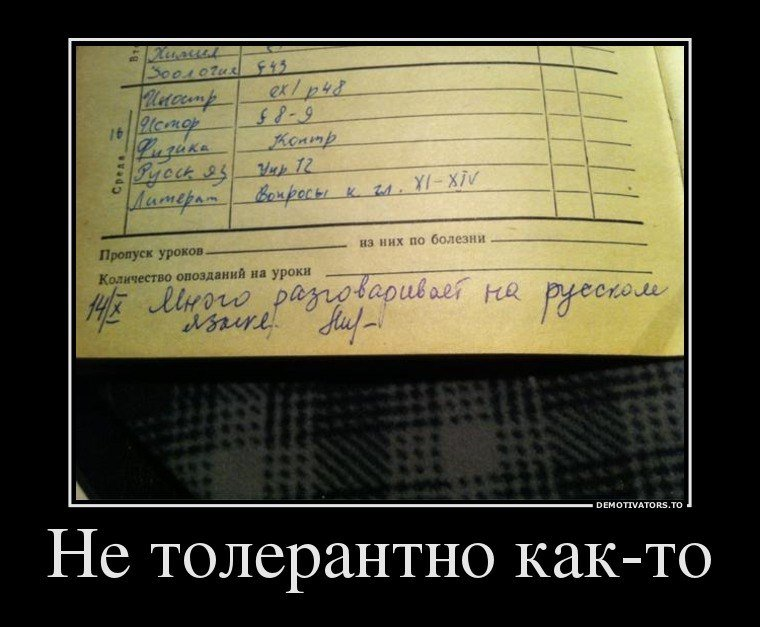 Вт
Химия
Зоология §43
Среда
16
Иностр ex1 p48
Истор § 8-9
Физика Контр
Русск яз Упр 12
Литерат Вопросы к гл. XI-XIV
Пропуск уроков
из них по болезни
Количество опозданий на уроки
14/X Много разговаривает на русском
языке.
DEMOTIVATORS.TO
Не толерантно как-то